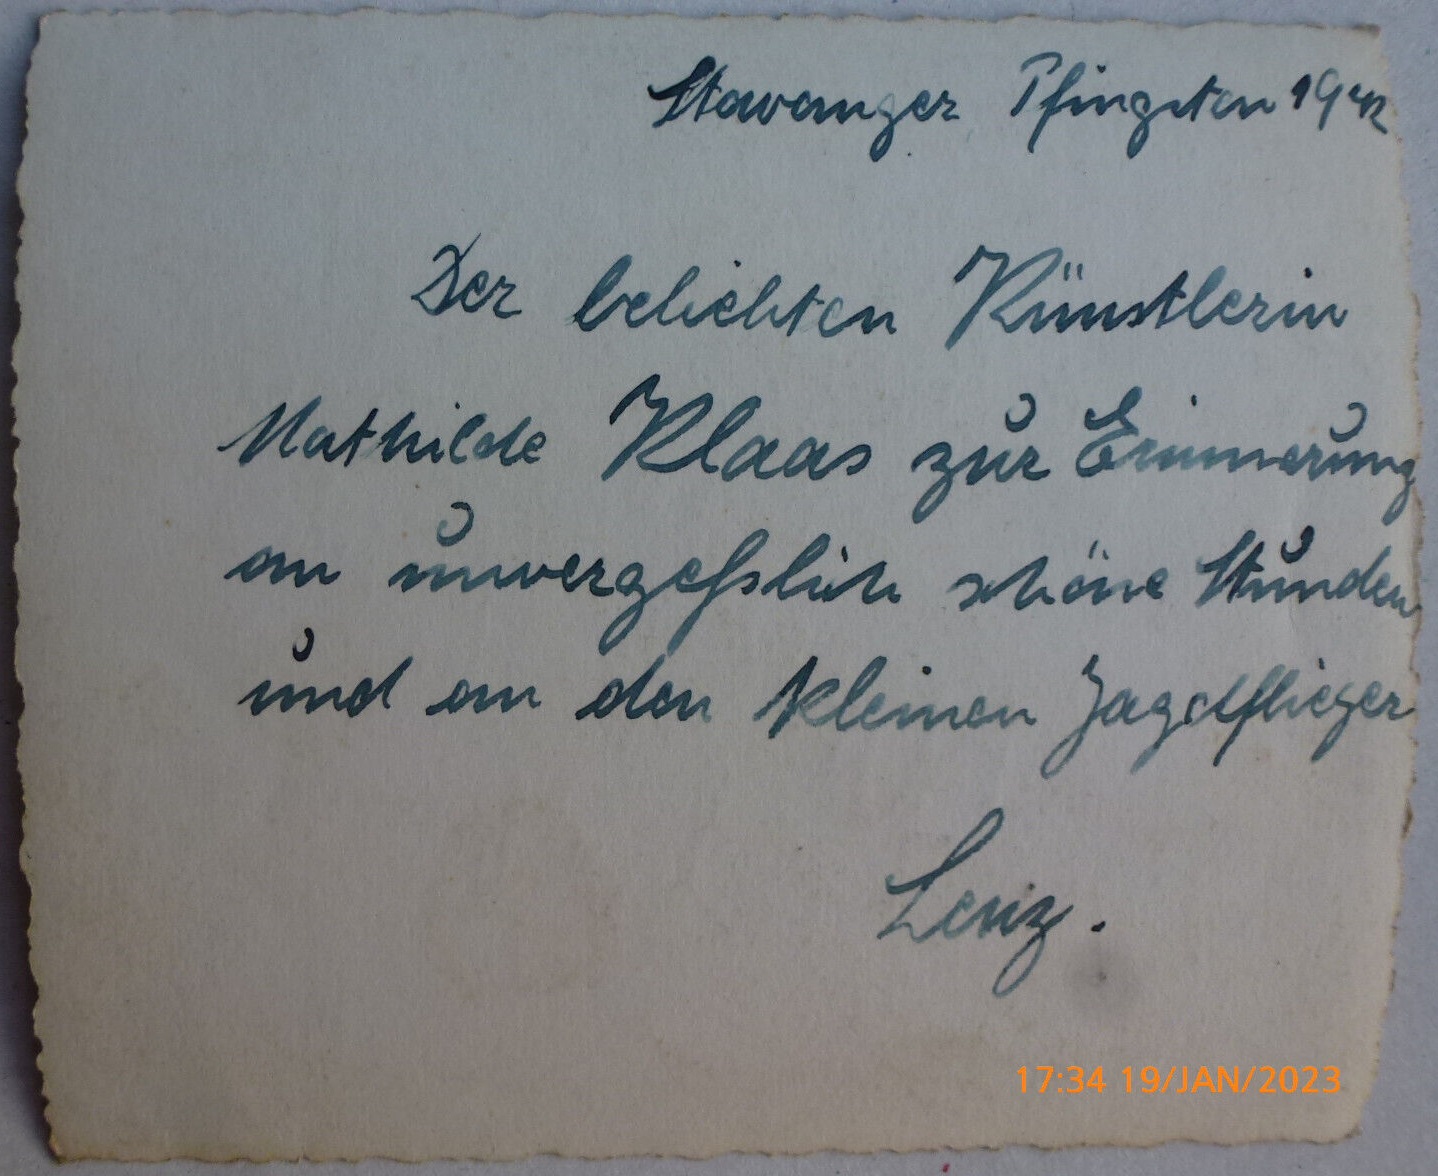 Stavanger Pfingsten 1942
Der beliebten Künstlerin
Mathilde Klaas zur Erinnerung
an unvergeßlich schöne Stunden
und an den kleinen Jagdflieger
Lenz.
17:34 19/JAN/2023